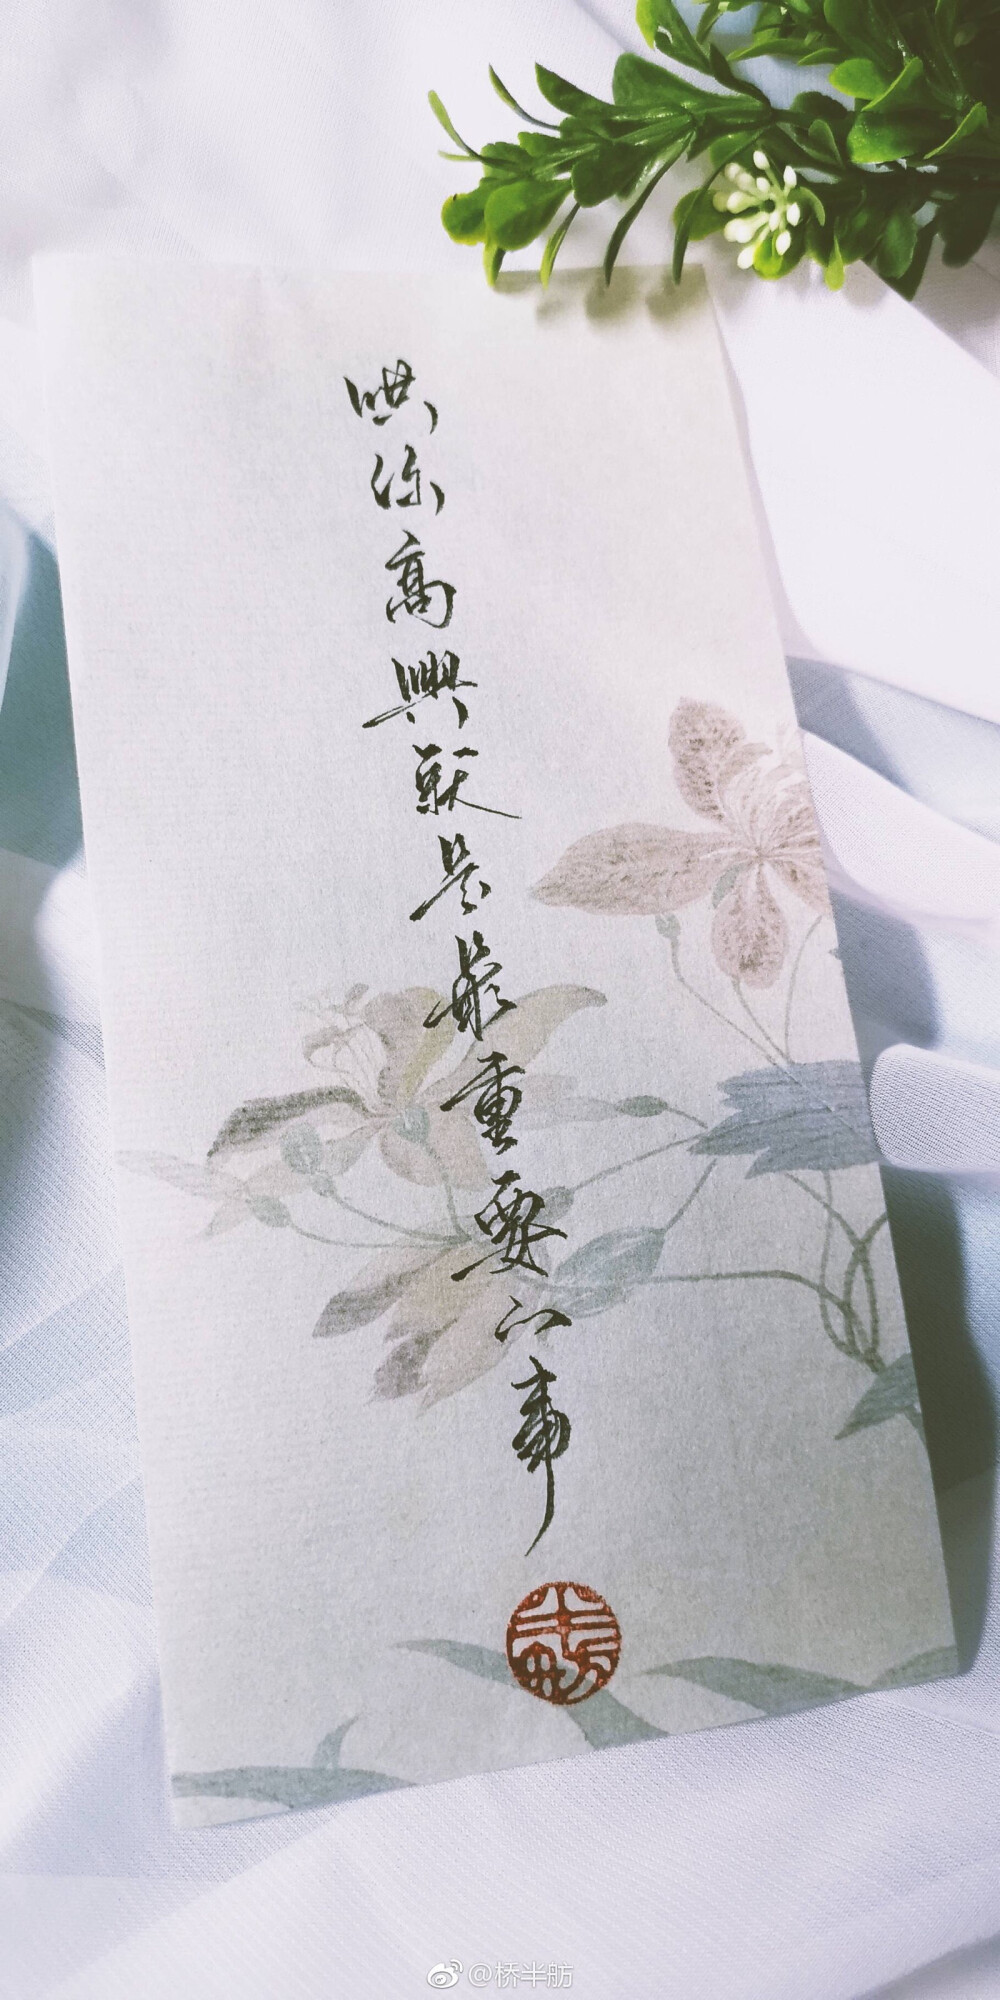 哄你高興就是最重要的事
半舫
@桥半舫